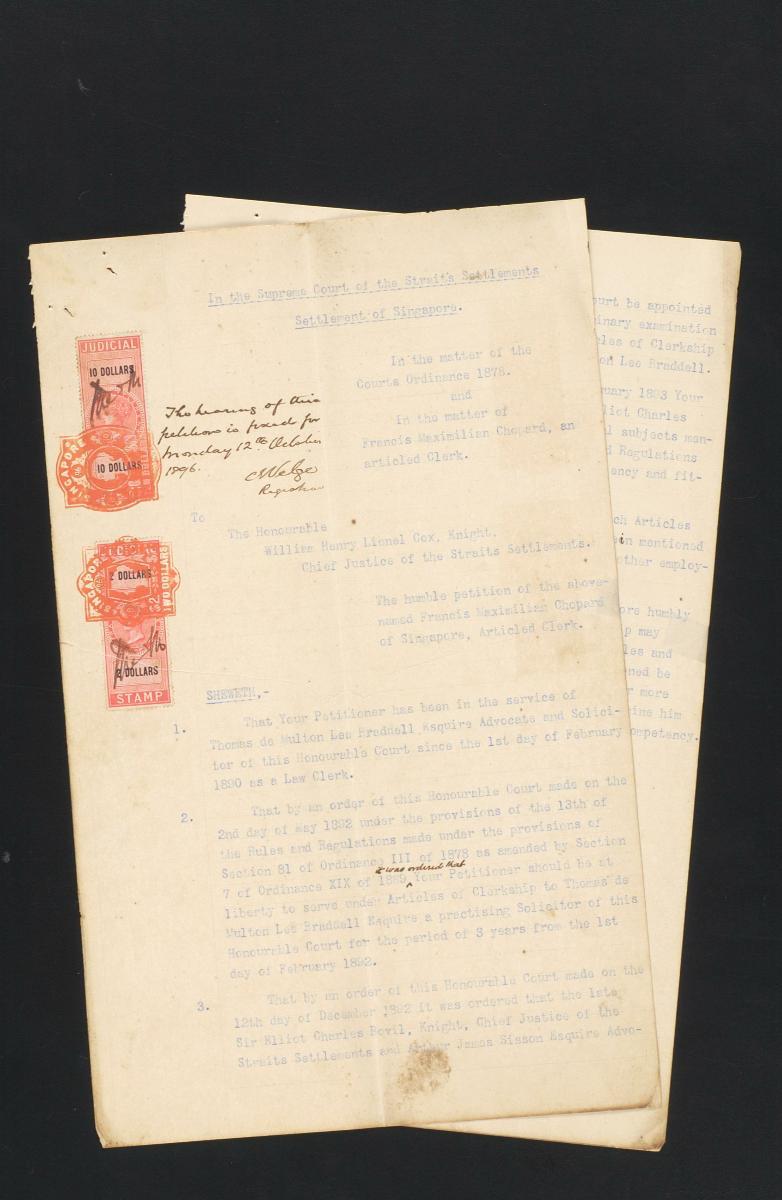 In the Supreme Court of the Straits Settlements
Settlement of Singapore.
In the matter of the
Courts Ordinance 1878.
and
In the matter of
Francis Maximilian Chopard, an
articled Clerk.
JUDICIAL
10 DOLLARS
SINGAPORE
10 DOLLARS
The hearing of this
petition is fixed for
Monday 12th October
1896.
Registrar
SINGAPORE
2 DOLLARS
TWO DOLLARS
2 DOLLARS
STAMP
To
The Honourable
William Henry Lionel Cox, Knight.
Chief Justice of the Straits Settlements.
The humble petition of the above-
named Francis Maximilian Chopard
of Singapore, Articled Clerk.
SHEWETH,-
1. That Your Petitioner has been in the service of
Thomas de Multon Lee Braddell Esquire Advocate and Solici-
tor of this Honourable Court since the 1st day of February
1890 as a Law Clerk.
2. That by an order of this Honourable Court made on the
2nd day of May 1892 under the provisions of the 13th of
the Rules and Regulations made under the provisions of
Section 81 of Ordinance III of 1878 as amended by Section
it was ordered that
7 of Ordinance XIX of 1889 Your Petitioner should be at
liberty to serve under Articles of Clerkship to Thomas de
Multon Lee Braddell Esquire a practising Solicitor of this
Honourable Court for the period of 3 years from the 1st
day of February 1892.
3. That by an order of this Honourable Court made on the
12th day of December 1892 it was ordered that the late
Sir Elliot Charles Bovil, Knight, Chief Justice of the
Straits Settlements and Arthur James Sisson Esquire Advo-
ourt be appointed
inary examination
cles of Clerkship
on Lee Braddell.
ruary 1893 Your
liot Charles
l subjects men-
d Regulations
ency and fit-
ch Articles
ein mentioned
other employ-
ore humbly
p may
les and
ned be
r more
ine him
ompetency.